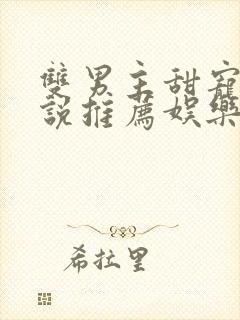 雙男主甜寵
說推薦娛樂
希拉里